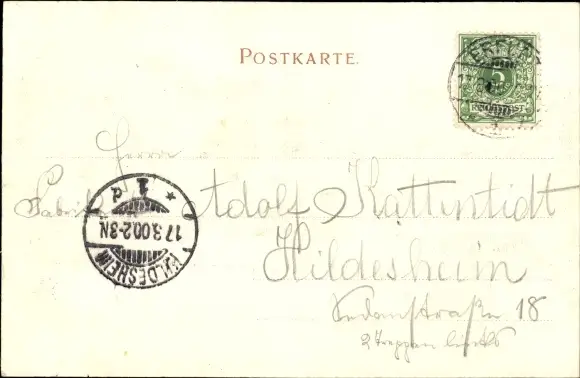 POSTKARTE.
5
REICHSPOST
Herrn
Adolf Kattentidt
Hildesheim
Sedanstraße 18
2 Treppen links
HILDESHEIM
17.3.00.2-3N
1 d